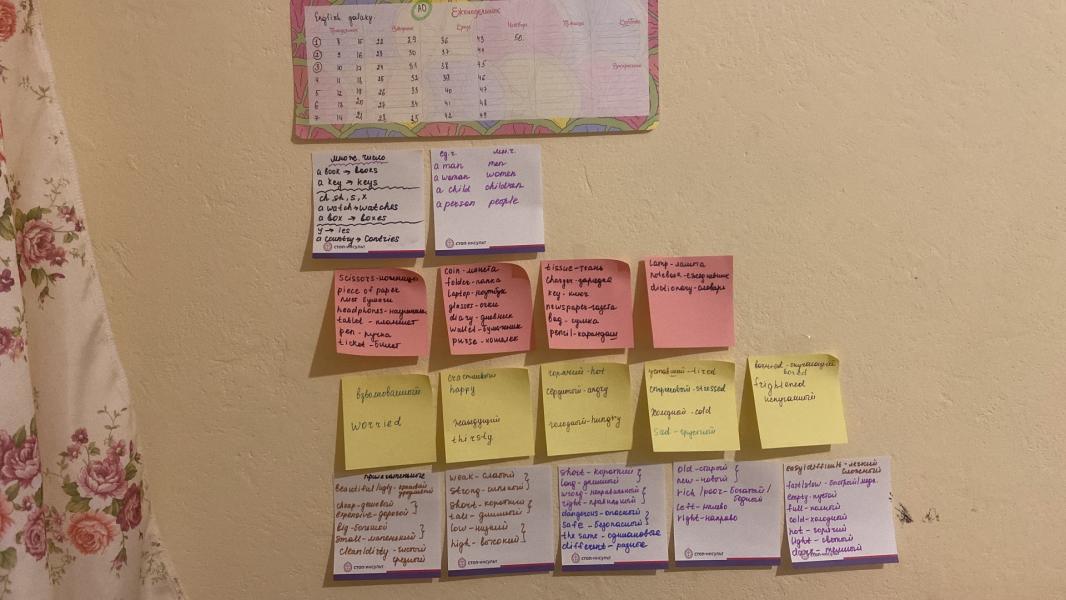 English galaxy.
A0
Еженедельник
Понедельник Вторник Среда Четверг Пятница Суббота
1 8 15 22 29 36 43 50.
2 9 16 23 30 37 44
3 10 17 24 31 38 45
4 11 18 25 32 39 46
5 12 19 26 33 40 47
6 13 20 27 34 41 48
7 14 21 28 35 42 49
Воскресенье
множ. число
a book → books
a key → keys
ch, sh, s, x
a watch → watches
a box → boxes
y → ies
a country → contries
СТОП-ИНСУЛЬТ
ед.ч. мн.ч.
a man men
a woman women
a child children
a person people
СТОП-ИНСУЛЬТ
scissors - ножницы
piece of paper
лист бумаги
headphones - наушники
tablet - планшет
pen - ручка
ticket - билет
coin - монета
folder - папка
laptop - ноутбук
glasses - очки
diary - дневник
wallet - бумажник
purse - кошелек
tissue - ткань
charger - зарядка
key - ключ
newspaper - газета
bag - сумка
pencil - карандаш
lamp - лампа
notebook - ежедневник
dictionary - словарь
взволнованный
worried
счастливый
happy
жаждущий
thirsty
горячий - hot
сердитый - angry
голодный - hungry
уставший - tired
stressed
холодный - cold
sad - грустный
bored
frightened
испуганный
прилагательные
beautiful/ugly - красивый
уродливый
cheap - дешевый
expensive - дорогой
big - большой
small - маленький
clean/dirty - чистый
грязный
СТОП-ИНСУЛЬТ
weak - слабый
strong - сильный
short - короткий
tall - длинный
low - низкий
high - высокий
СТОП-ИНСУЛЬТ
short - короткий
long - длинный
wrong - неправильный
right - правильный
dangerous - опасный
safe - безопасный
the same - одинаковое
different - разное
СТОП-ИНСУЛЬТ
old - старый
new - новый
rich/poor - богатый/
бедный
left - налево
right - направо
СТОП-ИНСУЛЬТ
easy/difficult - легкий
сложный
fast/slow - быстрый/медл.
empty - пустой
full - полный
cold - холодный
hot - горячий
light - светлый
dark - темный
СТОП-ИНСУЛЬТ